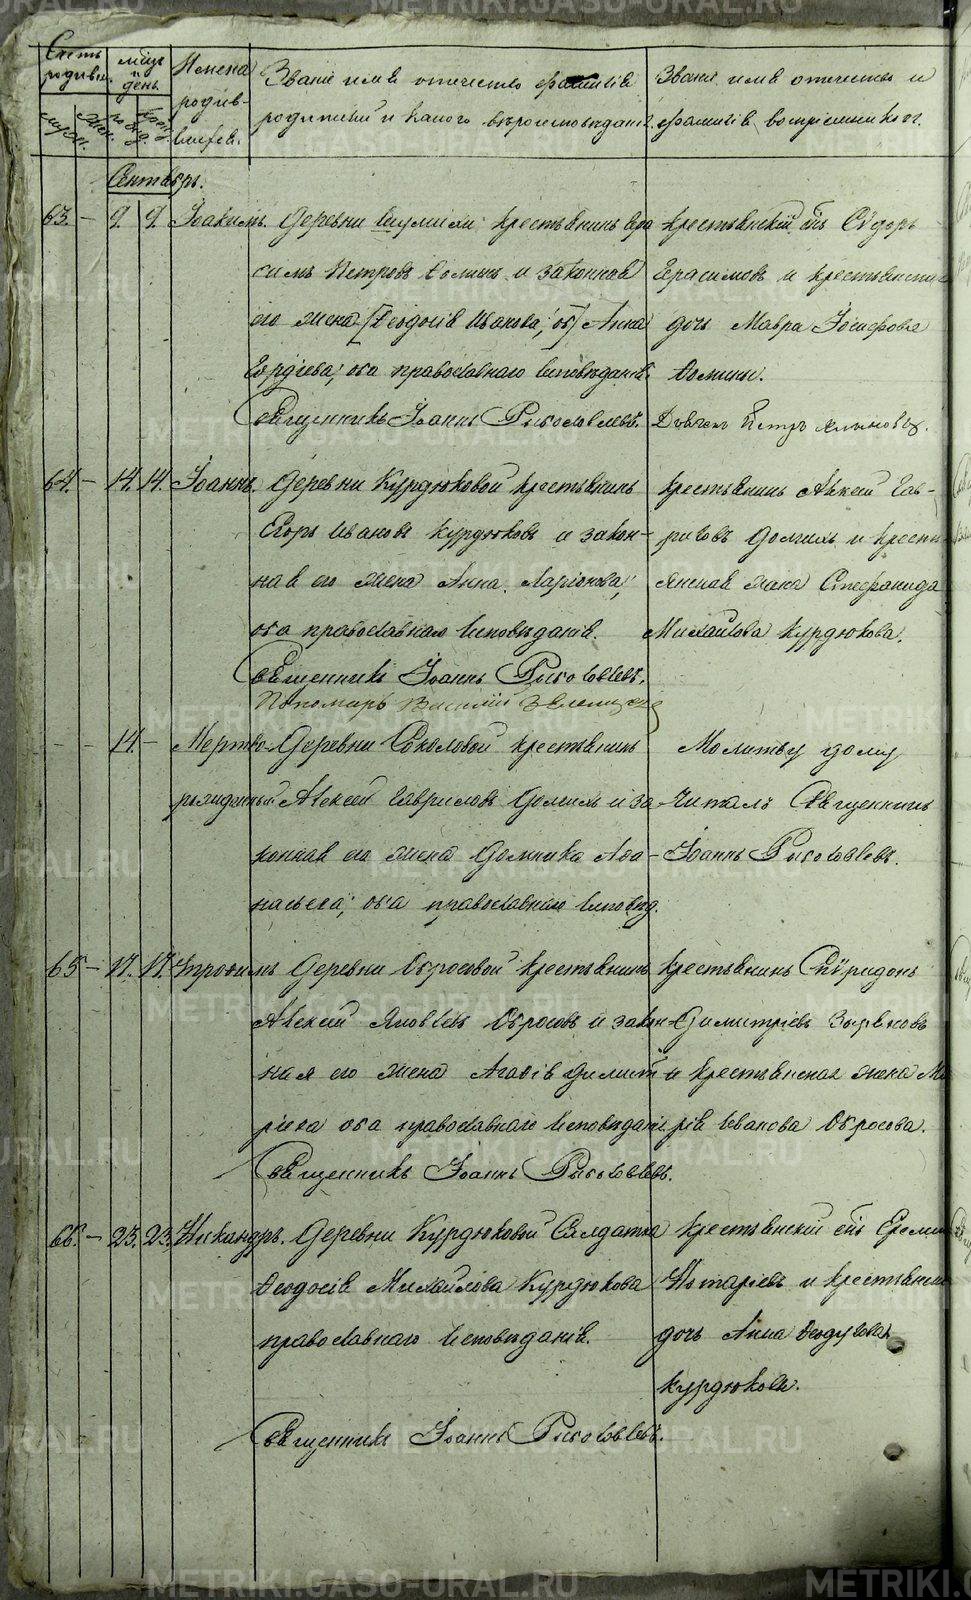 Счетъ родивш. мѣсяцъ и день Имена родив-
шихся. Званіе имя отечество фамилія
родителей и какого вѣроисповѣданія.
Званіе имя отечество и
фамилія воспріемниковъ.
Сентябрь.
63. — 9. 9. Іоакимъ. Деревни крестьянинъ Гера-
симъ Петровъ Ѳоминъ и законная
его жена [Ѳеодосія Иванова, об] Анна
Гордіева, оба православнаго исповѣданія.
Священникъ Іоаннъ
крестьянскій сынъ Сѵдоръ
Герасимовъ и крестьянская
дочь Мавра Іосифова
Ѳомины.
Дьячекъ Петръ
64. — 14. 14. Іоаннъ. Деревни Курдюковой крестьянинъ
Егоръ Ивановъ Курдюковъ и закон-
ная его жена Анна Ларіонова,
оба православнаго исповѣданія.
Священникъ Іоаннъ
Пономарь Василій
крестьянинъ Алексей Гав-
риловъ Долгихъ и крестья-
янская жена Стефанида
Михайлова Курдюкова.
— — 14. — Мертво-
рожденный Деревни Соколовой крестьянинъ
Алексей Гавриловъ Долгихъ и за-
конная его жена Домника Аѳа-
насьева, оба православнаго исповѣд.
Молитву дому
читалъ Священникъ
Іоаннъ
65 — 17. 17. Трофимъ Деревни Обросовой крестьянинъ
Алексей Яковлевъ Обросовъ и закон-
ная его жена Агафія Димитріева
оба православнаго исповѣданія
Священникъ Іоаннъ
крестьянинъ Спѵридонъ
Димитріевъ Зыряновъ
и крестьянская жена Ма-
рія Иванова Обросова.
66. — 23. 23. Никандръ. Деревни Курдюковой Салдатка
Ѳеодосія Михайлова Курдюкова
православнаго исповѣданія.
крестьянскій сынъ
Нотаріевъ и крестьянская
дочь Анна Ѳеодулова
Курдюковы.
Священникъ Іоаннъ
METRIKI.GASO-URAL.RU